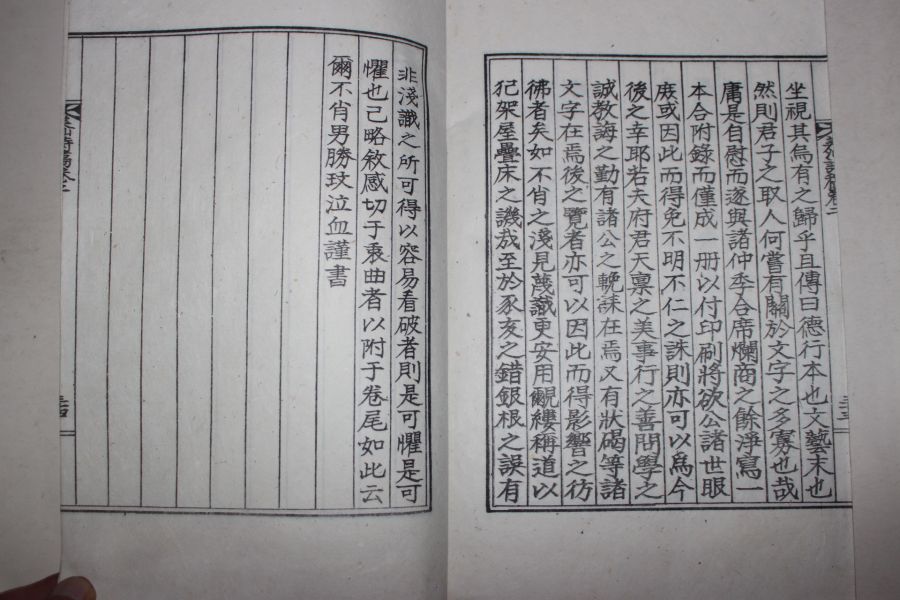 坐視其烏有之歸乎且傳曰德行本也文藝末也
然則君子之取人何嘗有關於文字之多寡也哉
庸是自慰而遂與諸仲季合席爛商之餘淨寫一
本合附錄而僅成一册以付印刷將欲公諸世眼
庶或因此而得免不明不仁之誅則亦可以爲今
後之幸耶若夫府君天禀之美事行之善問學之
誠敎誨之勤有諸公之輓誄在焉又有狀碣等諸
文字在焉後之覽者亦可以因此而得影響之彷
彿者矣如不肖之淺見蔑識更安用覼縷稱道以
犯架屋疊床之譏哉至於豕亥之錯銀根之誤有
非淺識之所可得以容易看破者則是可懼是可
懼也已略敘感切于衷曲者以附于卷尾如此云
爾不肖男勝玟泣血謹書